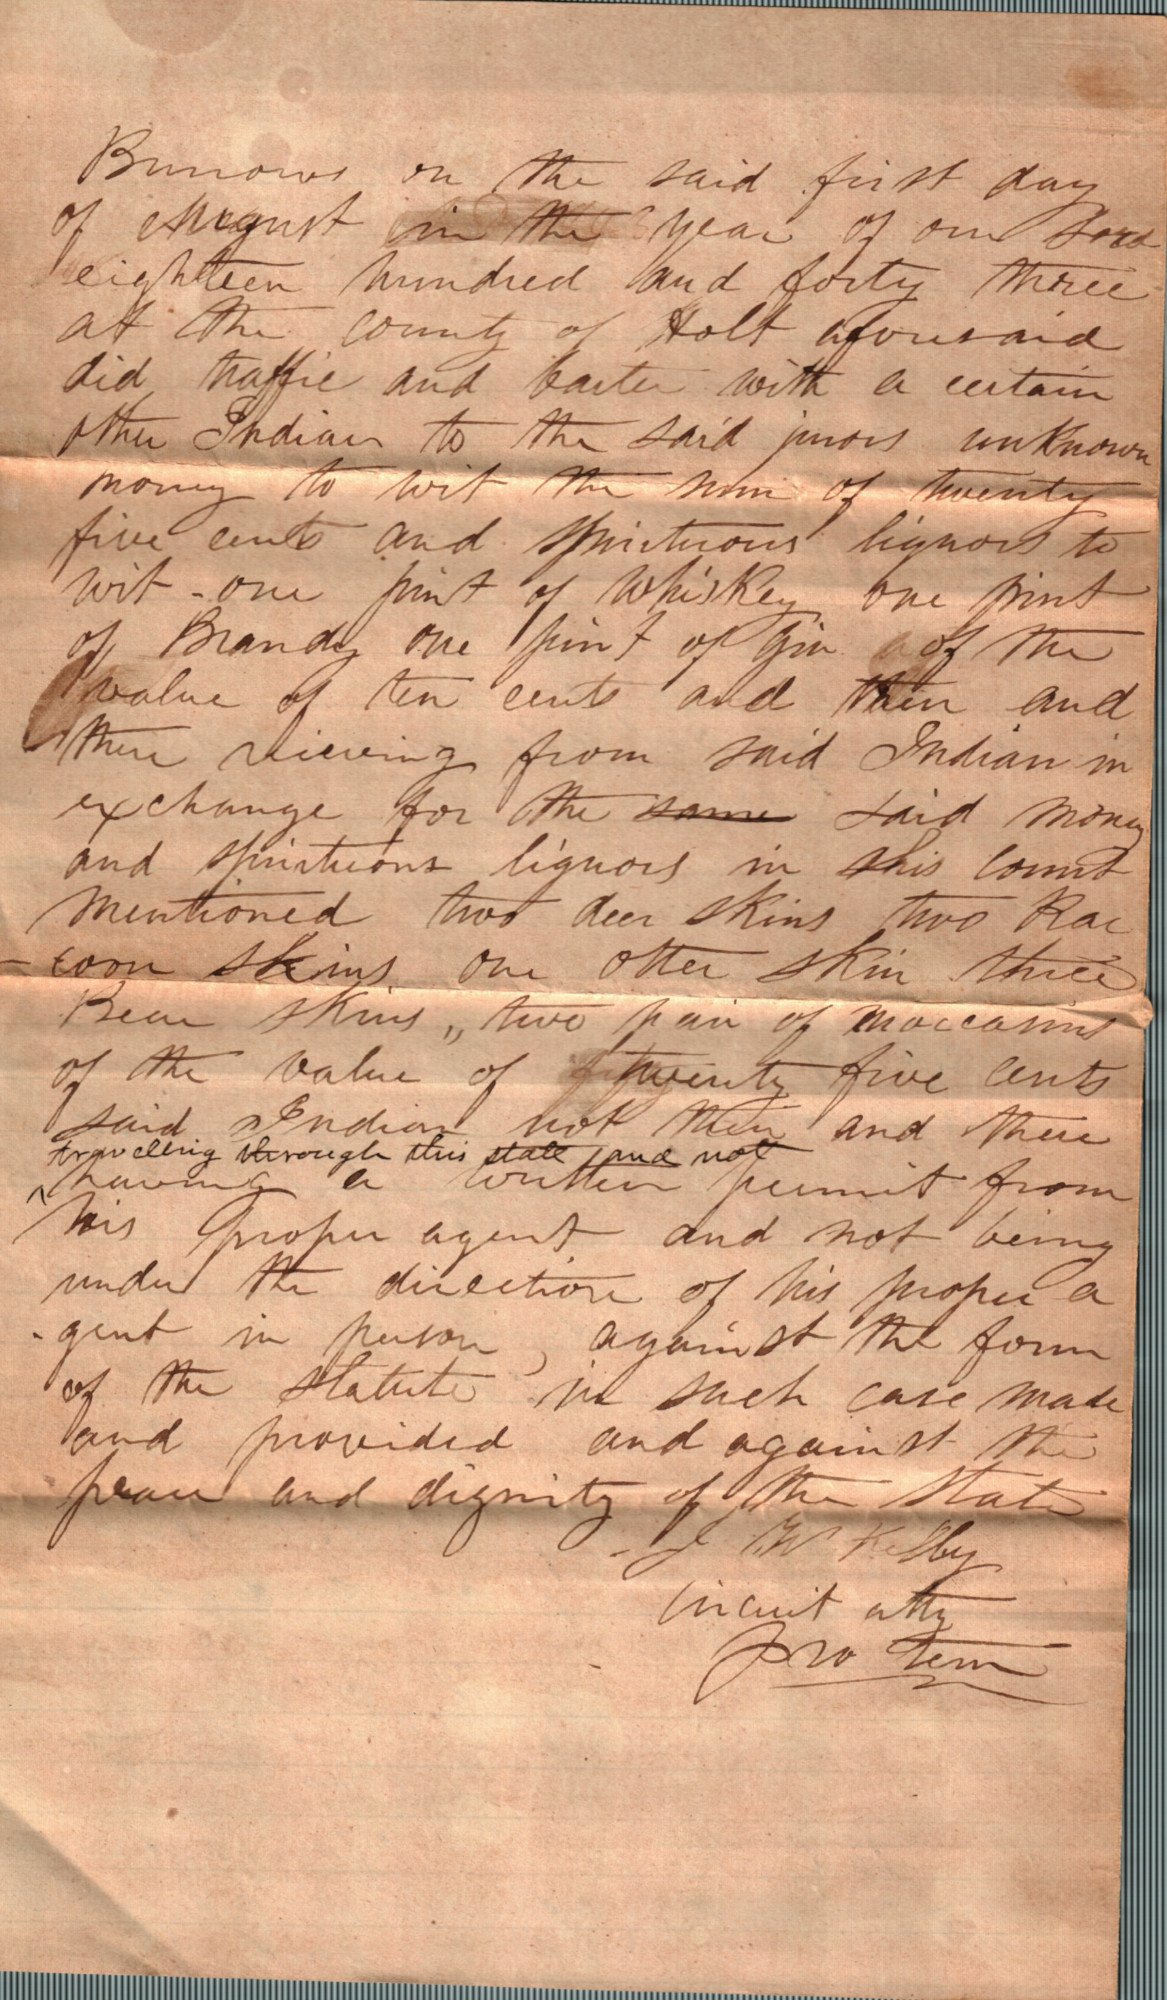 Burrows on the said first day
of August in the year of our Lord
eighteen hundred and forty three
at the county of Holt aforesaid
did traffic and barter with a certain
other Indian to the said jurors unknown
money to wit the sum of twenty
five cents and spirituous liquors to
wit - one pint of Whiskey one pint
of Brandy one pint of Gin of the
value of ten cents and then and
there recieving from said Indian in
exchange for the same said money
and spirituous liquors in this count
mentioned two deer skins two Rac
-coon skins one otter skin three
Bear skins,, two pair of moccasins
of the value of twenty five cents
said Indian not then and there
traveling through this state and not
^ having a written permit from
his proper agent and not being
under the direction of his proper a
-gent in person, against the form
of the statute in such case made
and provided and against the
peace and dignity of the State
J. W Kelly
Circuit atty
Pro Tem